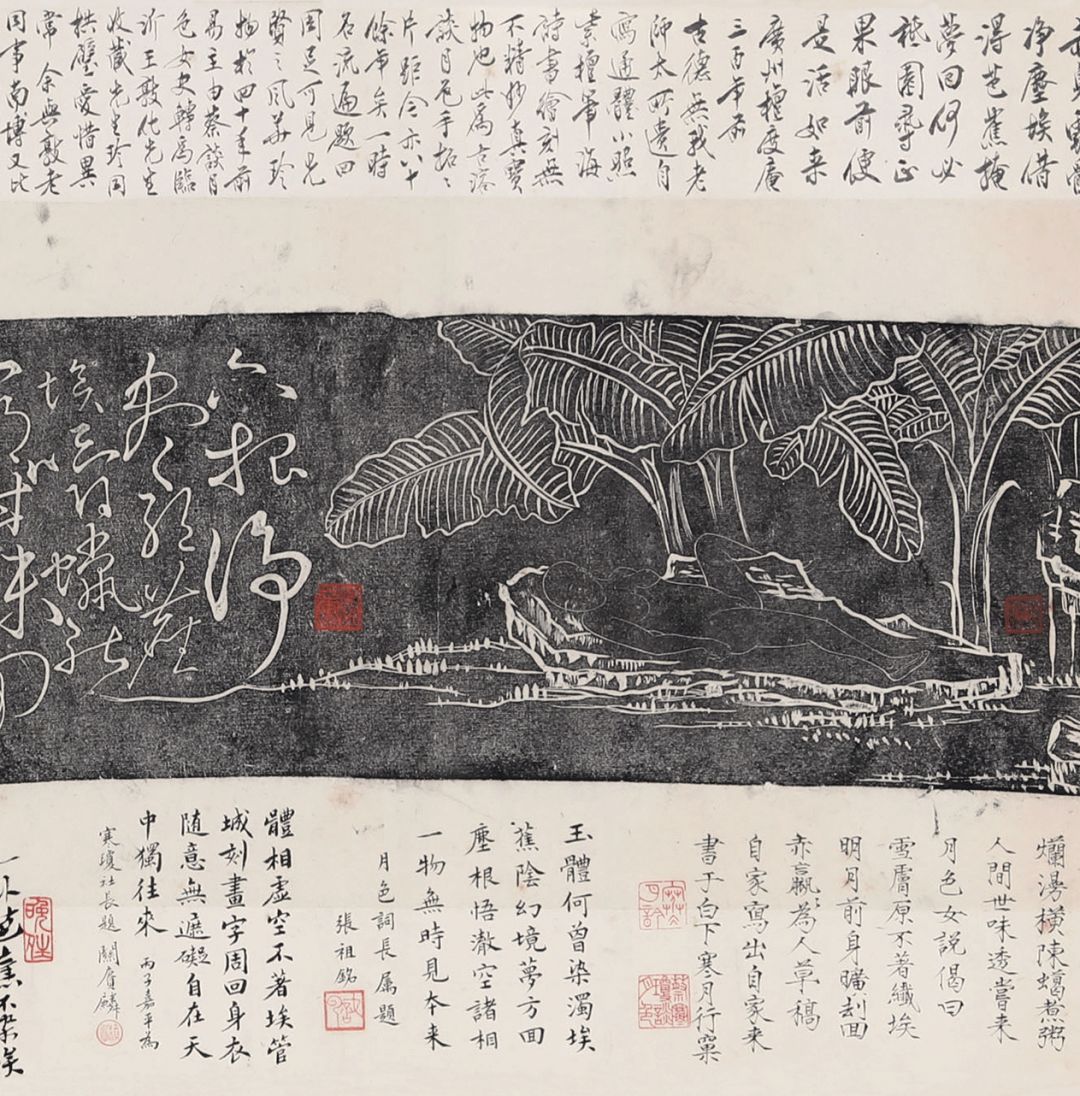 净塵埃借
得芭蕉掩
夢回何必
祗園尋正
果眼前便
是活如来
廣州檀度庵
三百年前
古德無我老
師太所遺自
寫通體小照
紫檀筆海
詩書繪刻無
不精妙真寶
物也此為古溶
談月色手拓之
片距今亦八十
餘年矣一時
名流遍題四
周足可見先
賢之風華珍
物於四十年前
易主由蔡談月
色女史轉為臨
沂王敦化先生
收藏先生珍同
拱璧愛惜異
常余與敦老
同事南博又比
六根净
盡絕塵
埃嚼蠟能
尋味
横陳蝎煮粥
人間世味透嘗来
月色女説偈曰
雪膚原不著纖埃
明月前身曠刦回
赤臝為人草稿
自家寫出自家来
書于白下寒月行窠
玉體何曾染濁埃
蕉陰幻境夢方回
塵根悟澈空諸相
一物無時見本来
月色詞長属題
張祖銘
體相虛空不著埃管
城刻畫字周回身衣
随意無遮礙自在天
中獨往來 丙子嘉平為
寒瓊社長題 關賡麟
一卧芭蕉不染埃